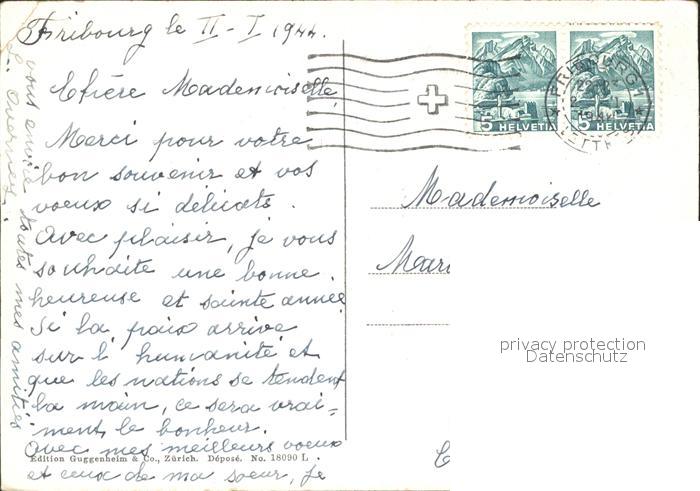 Fribourg le II-I 1944.
Chère Mademoiselle
Merci pour votre
bon souvenir et vos
voeux si délicats.
Avec plaisir, je vous
souhaite une bonne.
heureuse et sainte année
Si la paix arrive
sur l'humanité et
que les nations se tendent
la main, ce sera vrai=
ment le bonheur.
Avec mes meilleurs voeux
et ceux de ma soeur, je
vous envoie toutes mes amitiés
Edition Guggenheim & Co., Zürich. Déposé. No. 18090 L
5 HELVETIA
5 HELVETIA
FRIBOURG 1
Mademoiselle
Mari
privacy protection
Datenschutz